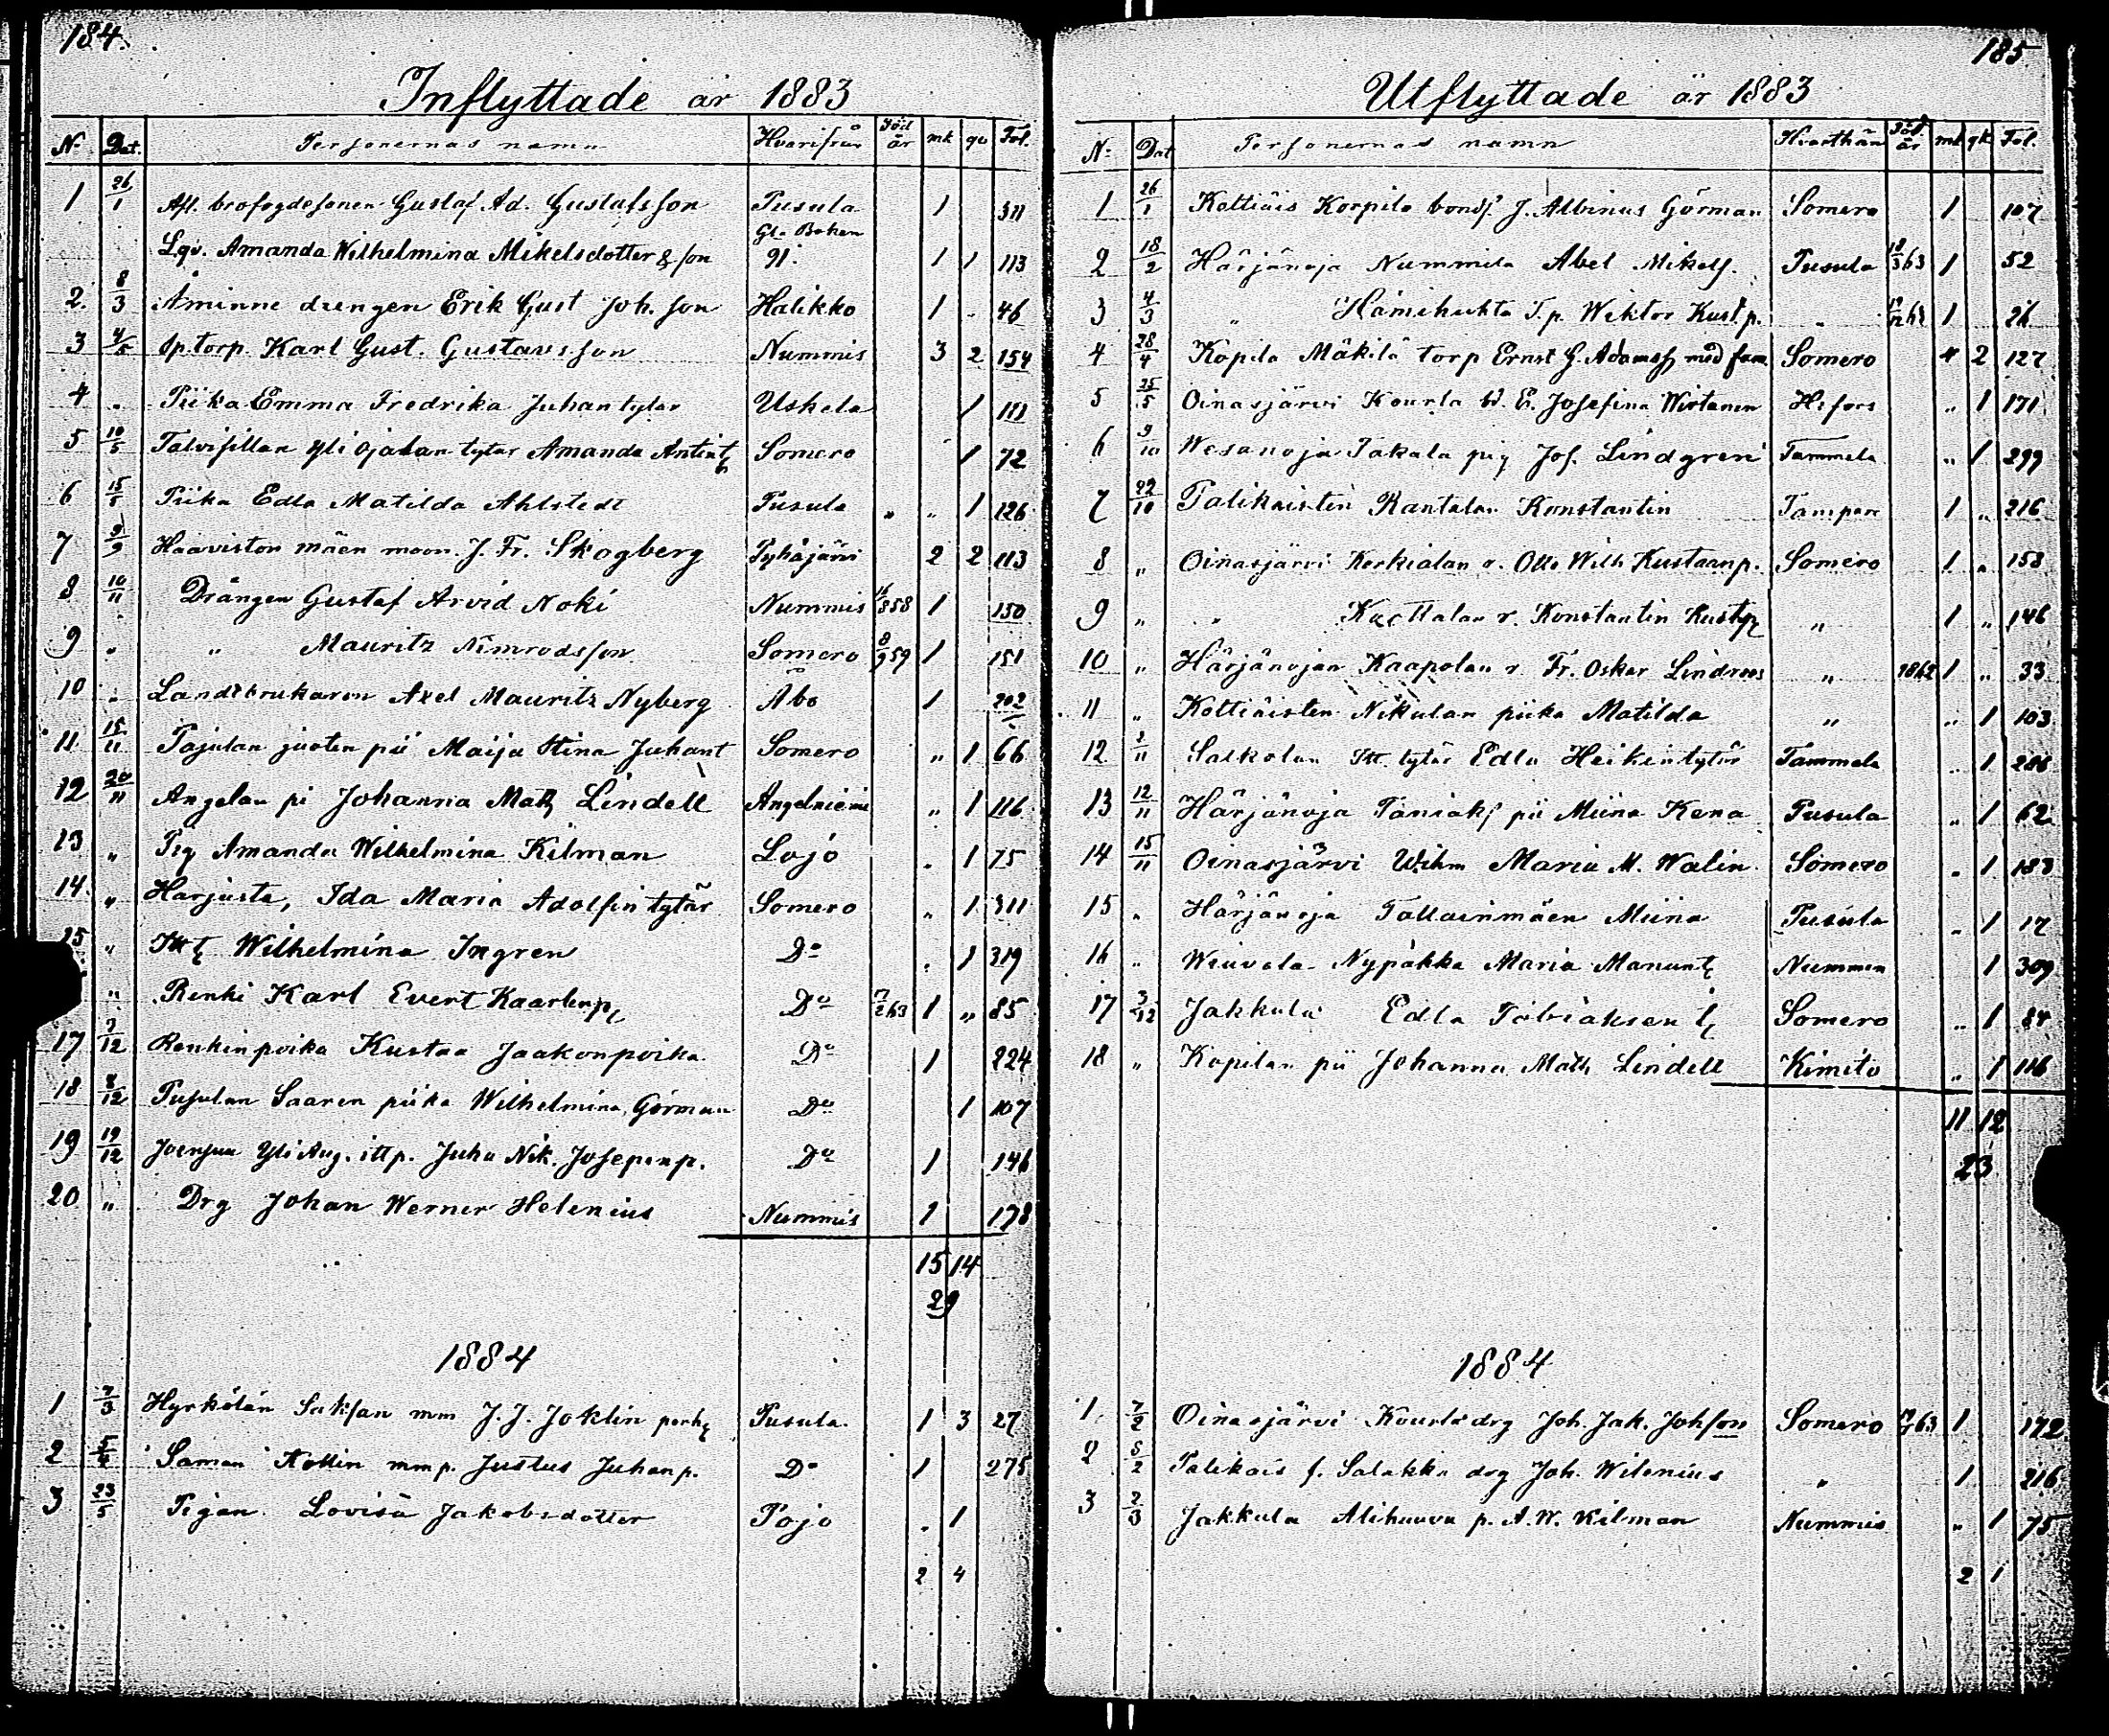 184.
Inflyttade år 1883
No Dat. Personernas namn Hvarifrån Född år mk qv Fol.
1 26/1 Afl. brofogdesonen Gustaf Ad. Gustafsson Pusula 1 311
Gla Boken
Lqv. Amanda Wilhelmina Mikelsdotter & son 91. 1 1 113
2. 8/3 Åminne drengen Erik Gust Joh. son Halikko 1 46
3 4/5 Sp.torp. Karl Gust. Gustavsson Nummis 3 2 154
4 " Piika Emma Fredrika Juhantytär Uskela 1 111
5 10/5 Talvisillan Yli Ojalan tytär Amanda Antint Somero 1 72
6 15/5 Piika Edla Matilda Ahlstedt Pusula " " 1 126
7 9/9 Haaviston mäen moon. J. Fr. Skogberg Pyhäjärvi 2 2 113
8 10/11 Drängen Gustaf Arvid Noki Nummis 858 1 150
9 " " Mauritz Nimrodsson Somero 8/9 59 1 151
10 " Landtbrukaren Axel Mauritz Nyberg Åbo 1 202
11 15/11 Pajulan juoten pii Maija Stina Juhant Somero " 1 66
12 20/11 Angelan pi Johanna Matts Lindell Angelniemi " 1 116
13 " Pig Amanda Wilhelmina Kilman Lojo " 1 75
14. " Harjusta, Ida Maria Adolfintytär Somero " 1 311
15 " Itt Wilhelmina Ingren Do " 1 319
" Renki Karl Evert Kaarlenp Do 7/2 63 1 " 85
17 7/12 Renkinpoika Kustaa Jaakonpoika Do 1 224
18 8/12 Pusulan Saaren piika Wilhelmina Görman Do 1 107
19 19/12 Joensuu Yli Aug. itt p. Juha Nik. Josepinp. Do 1 146
20 " Drg Johan Werner Helenius Nummis 1 178
15 14
29
1884
1 7/3 Hyrkölän Saksan mm J. J. Joklin perh Pusula 1 3 27
2 5/4 Saman Kollin mmp. Justus Juhanp. Do 1 275
3 23/5 Pigan Lovisa Jakobsdotter Pojo " 1
2 4
185
Utflyttade år 1883
No Dat Personernas namn Hvarthän Föd. år mk qk Fol.
1 26/1 Kottiäis Korpila bonds. J. Albinus Görman Somero 1 107
2 18/2 Härjänoja Nummila Abel Mikels. Pusula 18/3 63 1 52
3 4/3 " Hämihuhta T.p. Wiktor Kust.p. " 1 26
4 28/4 Kopila Mäkilä torp Ernst G. Adamss med fam Somero 4 2 127
5 25/5 Oinasjärvi Kourla bd. E. Josefina Wirtanen H:fors " 1 171
6 9/10 Wesanoja Takala pig Jos. Lindgren Tammela " 1 299
7 22/10 Palikaisten Rantalan Konstantin Tampere 1 " 216
8 " Oinasjärvi Kerkiälan r. Otto Wilh Kustaanp. Somero 1 " 158
9 " " Kuottalan r. Konstantin Kustp " 1 " 146
10 " Härjänojan Kaapolan r. Fr. Oskar Lindroos " 1862 1 " 33
11 " Kottiäisten Nikulan piika Matilda " " 1 103
12 2/11 Salkolan Itt. tytär Edla Heikintytär Tammela " 1 286
13 12/11 Härjänoja Taniaks pii Miina Kena Pusula " 1 62
14 15/11 Oinasjärvi Wihm Maria M. Walin Somero " 1 183
15 " Härjänoja Tallainmäen Miina Pusula " 1 17
16 " Wiuvala Nypäkka Maria Manunt Nummen 1 309
17 3/12 Jakkula Edla Tobiaksen t Somero " 1 84
18 " Kopilan pii Johanna Matts Lindell Kimito " 1 116
11 12
23
1884
1. 7/2 Oinasjärvi Kourla drg Joh. Jak. Johsson Somero 63 1 172
2 5/2 Palikais f. Salakka drg Joh. Wilenius " 1 216
3 2/3 Jakkula Alihuuva p. A. W. Kilman Nummis " 1 75
2 1